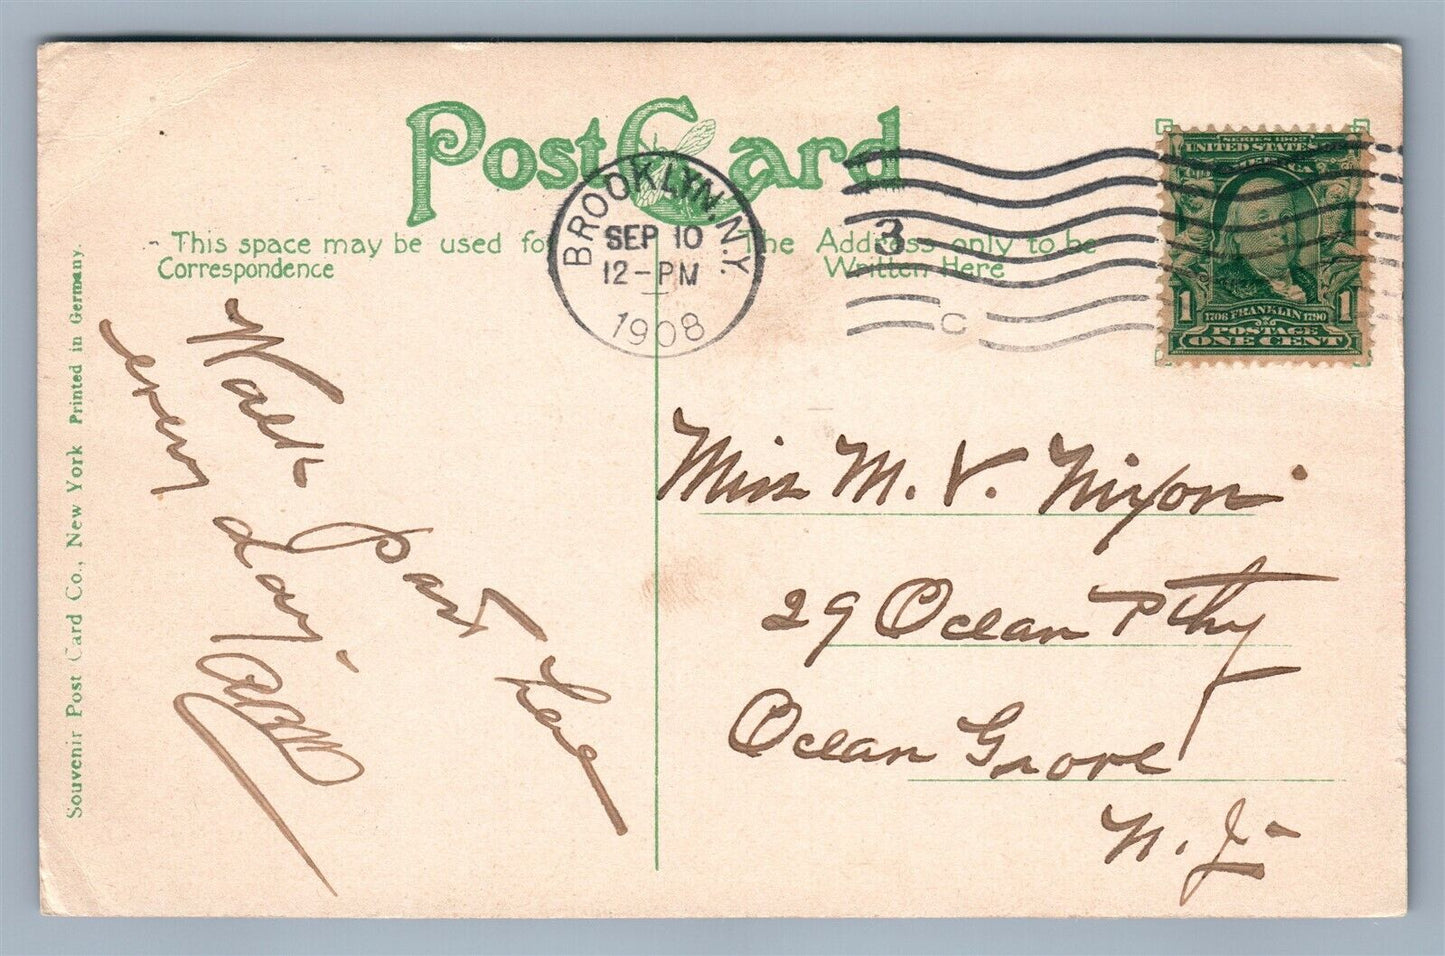 Post Card
This space may be used for
Correspondence
The Address only to be
Written Here
BROOKLYN, N.Y.
SEP 10
12-PM
1908
3
C
SERIES 1902
UNITED STATES OF AMERICA
1 1
1706 FRANKLIN 1790
POSTAGE
ONE CENT
Walk past here
every day.
Miss M. V. Nixon
29 Ocean Pthy
Ocean Grove
N. J.
Souvenir Post Card Co., New York Printed in Germany.